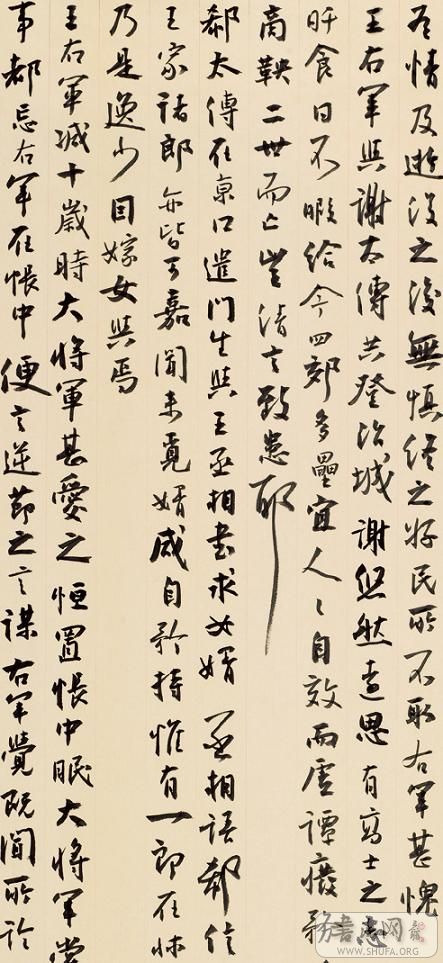 有情及逝没之後無慎終之好民所不取右軍甚愧
王右軍與謝太傅共登冶城謝悠然遠思有高士之志
旰食日不暇給今四郊多壘宜人〻自效而虛譚廢務
商鞅二世而亡豈清言致患耶
郗太傅在京口遣門生與王丞相書求女婿丞相語郗信
王家諸郎亦皆可嘉聞来覓婿咸自矜持惟有一郎在床
乃是逸少因嫁女與焉
王右軍減十歲時大將軍甚愛之恒置帳中眠大將軍嘗
事都忘右軍在帳中便言逆節之言謀右軍覺既聞所論
书法网
WWW.SHUFA.COM